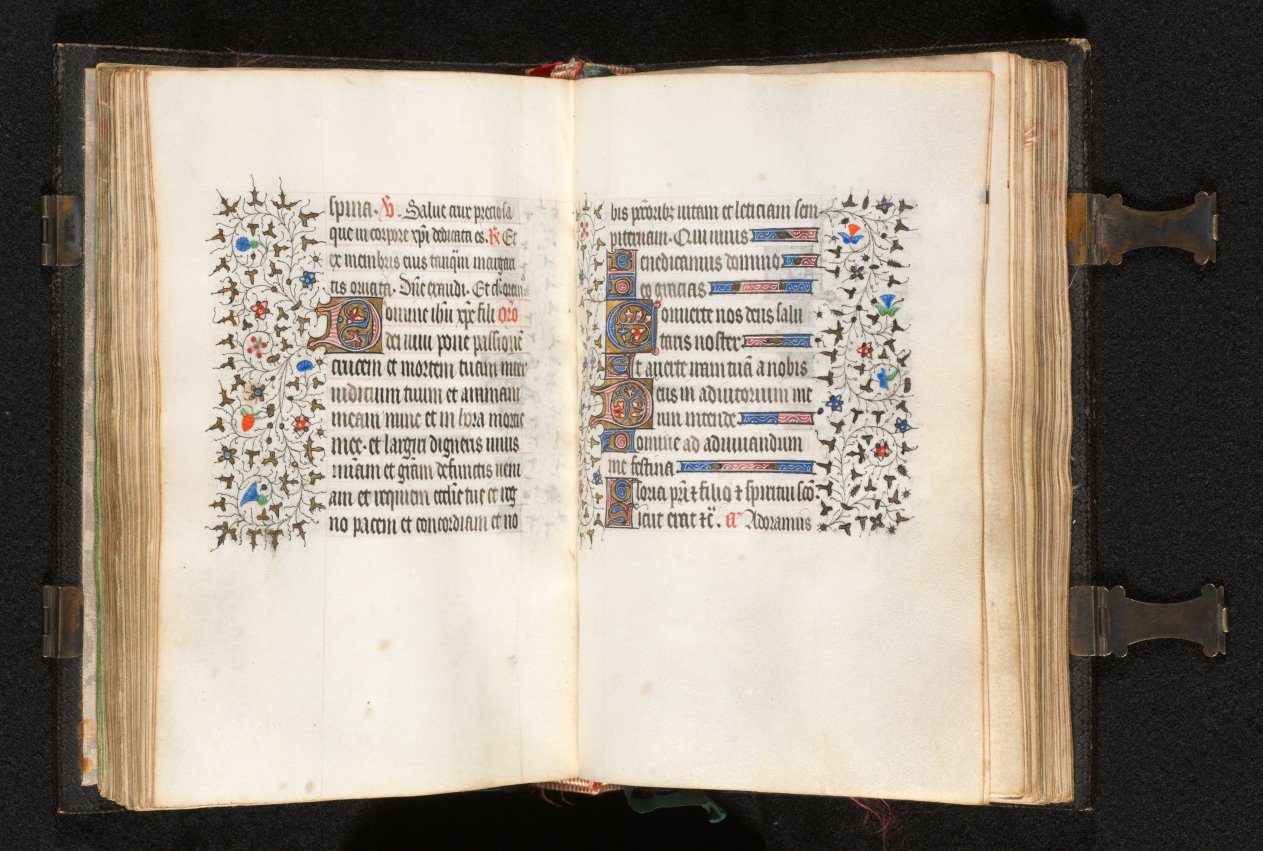 spina. V. Salue crux preciosa
que in corpore xpi dedicata es. R Et
ex membris eius tanq̄m margari
tis ornata. Dn̄e exaudi. Et clamor
Domine ihū xp̄e fili oro
dei uiui pone passionē
crucem et mortem tuam inter
iudicium tuum et animam
meam nunc et in hora mortis
mee. et largiri digneris uiuis
uiam et grām defunctis ueni
am et requiem ecclie tue et reg
no pacem et concordiam et no
bis pctōribz uitam et leticiam sem
piternam. Qui uiuis
Benedicamus domino
Deo gracias
Conuerte nos deus salu
taris noster
Et auerte iram tuā a nobis
Deus in adiutorium me
um intende
Domine ad adiuuandum
me festina
Gloria pr̄i ⁊ filio ⁊ spiritui sc̄o.
Sicut erat ⁊c̄. a Adoramus